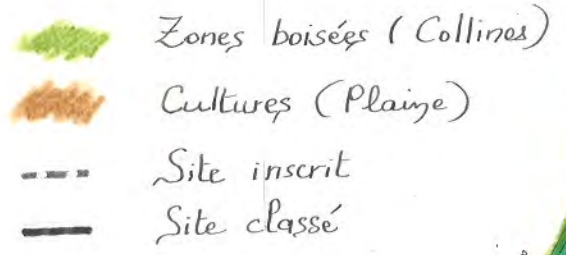 Zones boisées (Collines)
Cultures (Plaine)
Site inscrit
Site classé